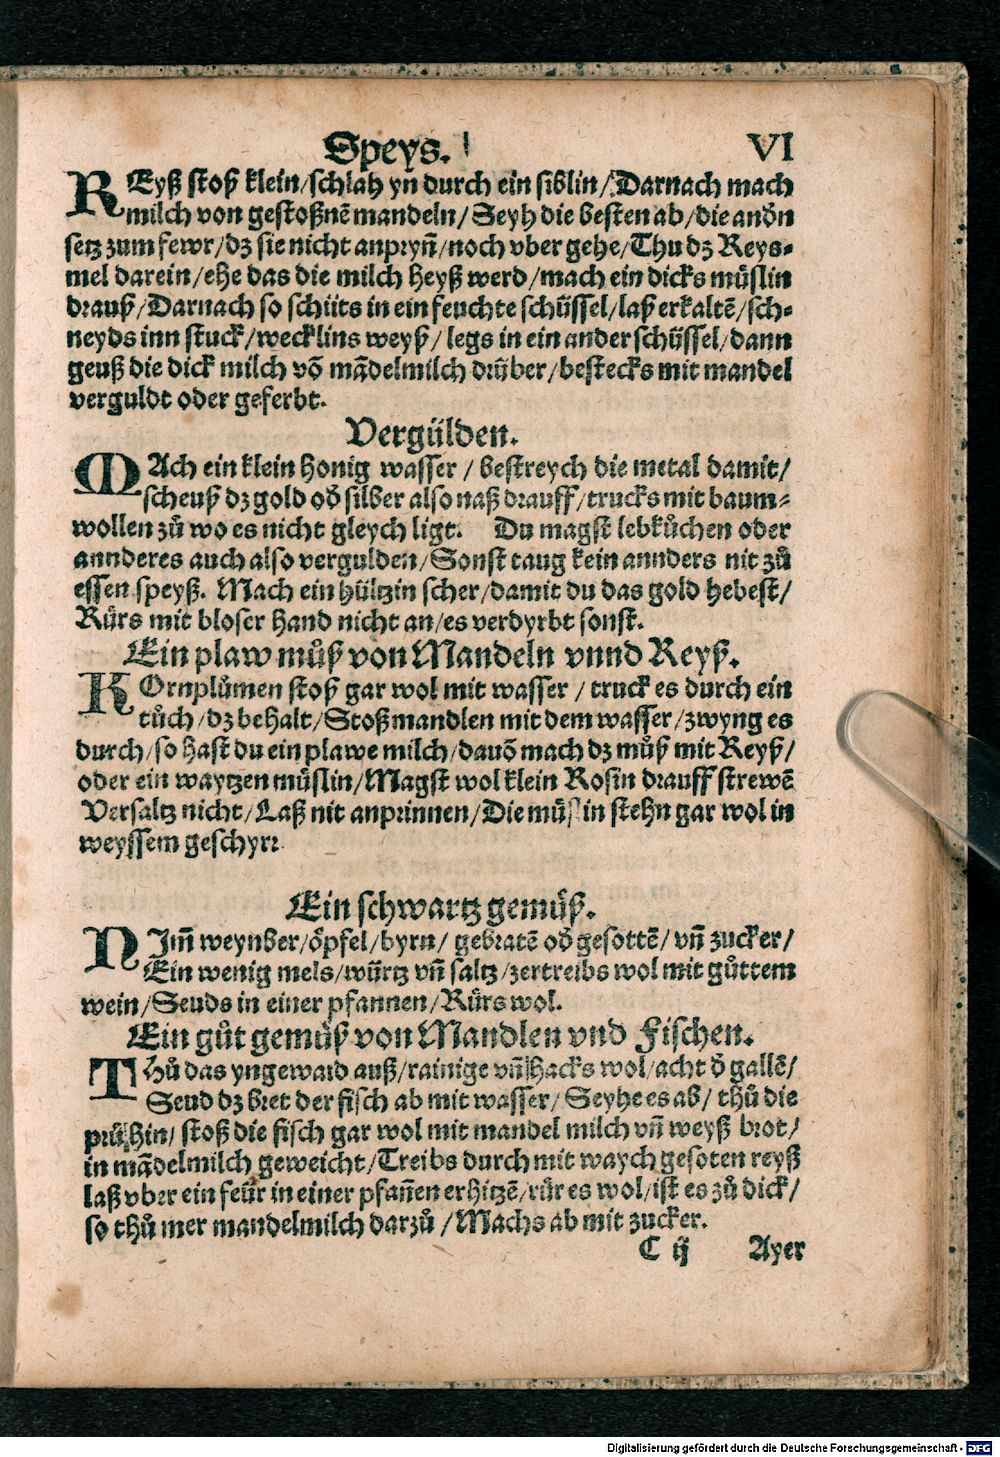 Speys. VI
REyß stoß klein/schlah yn durch ein siblin/Darnach mach
milch von gestoßnē mandeln/Seyh die besten ab/die andn̄
setz zum fewr/dz sie nicht anpryn̄/noch vber gehe/Thu dz Reys-
mel darein/ehe das die milch heyß werd/mach ein dicks můslin
drauß/Darnach so schüts in ein feuchte schüssel/laß erkaltē/sch-
neyds inn stuck/wecklins weyß/legs in ein ander schüssel/dann
geuß die dick milch vō mādelmilch drüber/bestecks mit mandel
verguldt oder geferbt.
Vergülden.
MAch ein klein honig wasser/bestreych die metal damit/
scheuß dz gold od̄ silber also naß drauff/trucks mit baum-
wollen zů wo es nicht gleych ligt. Du magst lebkůchen oder
annderes auch also vergulden/Sonst taug kein annders nit zů
essen speyß. Mach ein hültzin scher/damit du das gold hebest/
Rürs mit bloser hand nicht an/es verdyrbt sonst.
Ein plaw můß von Mandeln vnnd Reyß.
KOrnplůmen stoß gar wol mit wasser/truck es durch ein
tůch/dz behalt/Stoß mandlen mit dem wasser/zwyng es
durch/so hast du ein plawe milch/dauō mach dz můß mit Reyß/
oder ein waytzen müslin/Magst wol klein Rosin drauff strewē
Versaltz nicht/Laß nit anprinnen/Die müslin stehn gar wol in
weyssem geschyrr
Ein schwartz gemůß.
NJm̄ weynber/öpfel/byrn/gebratē od̄ gesottē/vn̄ zucker/
Ein wenig mels/würtz vn̄ saltz/zertreibs wol mit gůttem
wein/Seuds in einer pfannen/Rürs wol.
Ein gůt gemůß von Mandlen vnd Fischen.
THů das yngewaid auß/rainige vn̄ hacks wol/acht d̄ gallē/
Seud dz bret der fisch ab mit wasser/Seyhe es ab/thů die
prü hin/stoß die fisch gar wol mit mandel milch vn̄ weyß brot/
in mādelmilch geweicht/Treibs durch mit waych gesoten reyß
laß vber ein feür in einer pfan̄en erhitzē/rür es wol/ist es zů dick/
so thů mer mandelmilch darzů/Machs ab mit zucker.
C ij Ayer
Digitalisierung gefördert durch die Deutsche Forschungsgemeinschaft - DFG